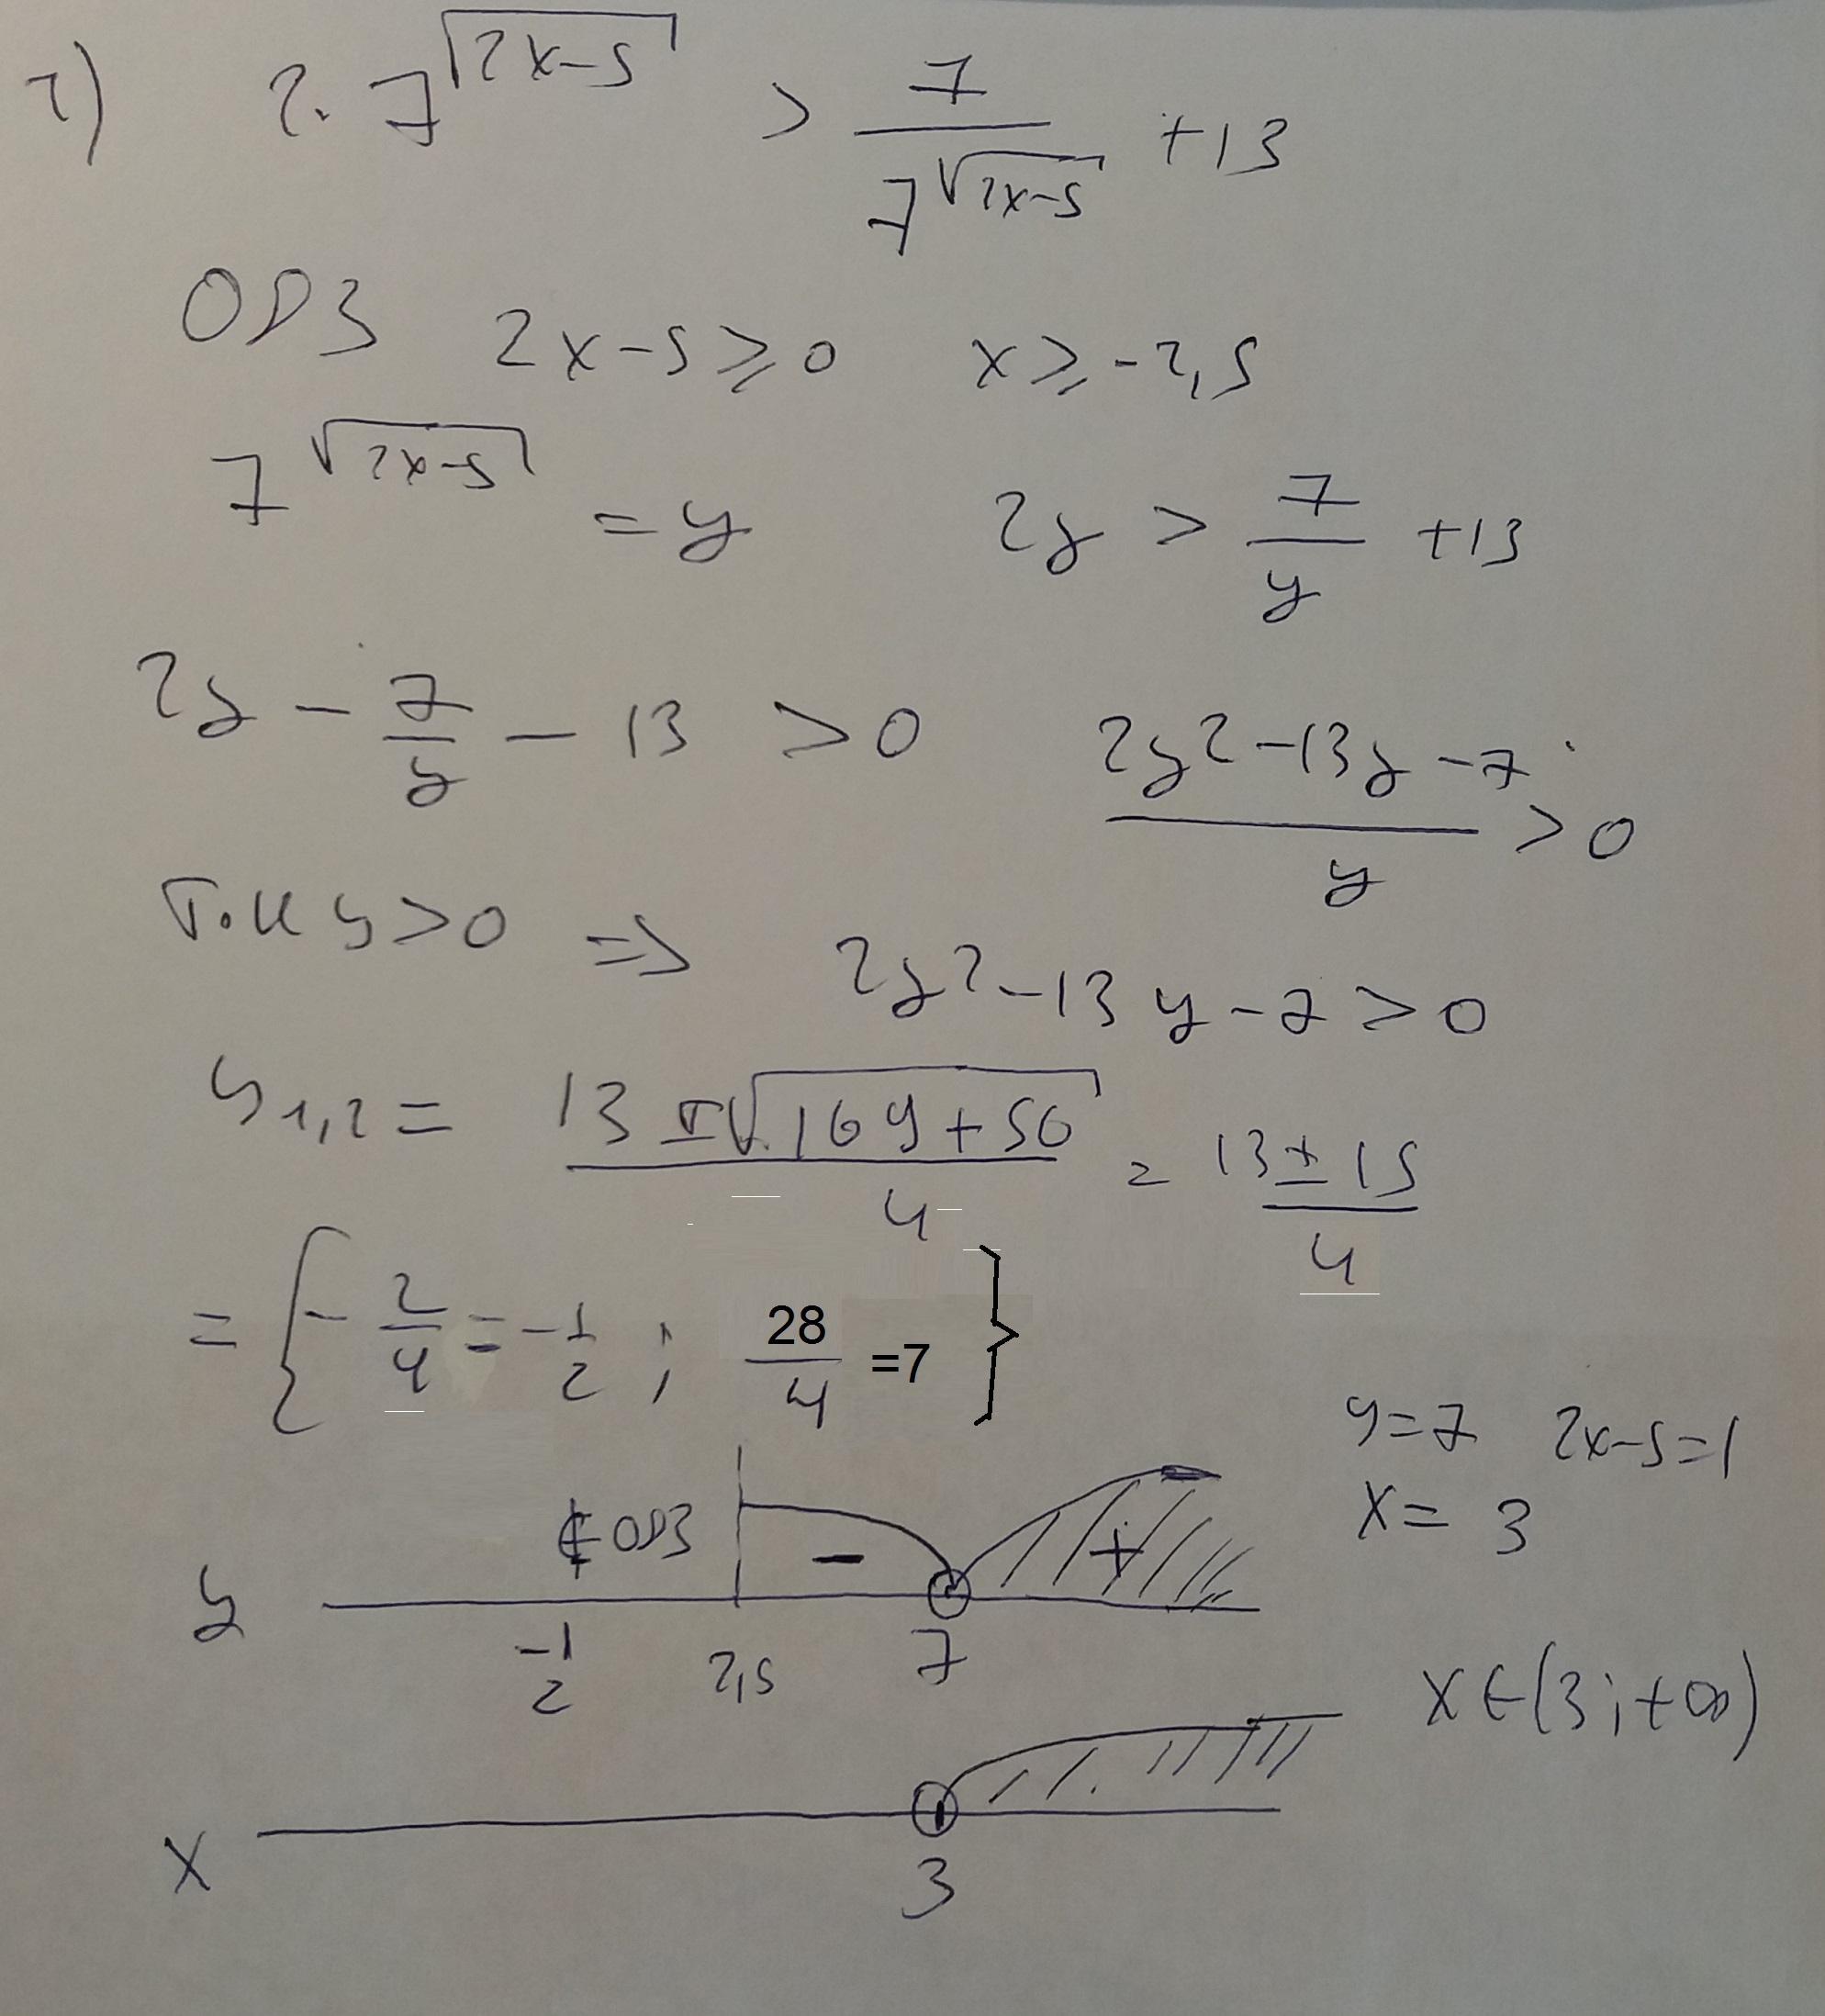 2) 2·7^√(2x-5) > 7/7^√(2x-5) +13
ОДЗ 2x-5⩾0 x⩾-2,5
7^√(2x-5) = y 2y > 7/y +13
2y - 7/y - 13 > 0 (2y²-13y-7)/y > 0
т.к y>0 => 2y²-13y-7>0
y1,2 = (13±√(169+56))/4 = (13±15)/4
= { -2/4 = -1/2 ; 28/4 =7 }
y=7 2x-5=1
x= 3
∉ ОДЗ - +
y
-1/2 2,5 7
x∈(3;+∞)
x
3